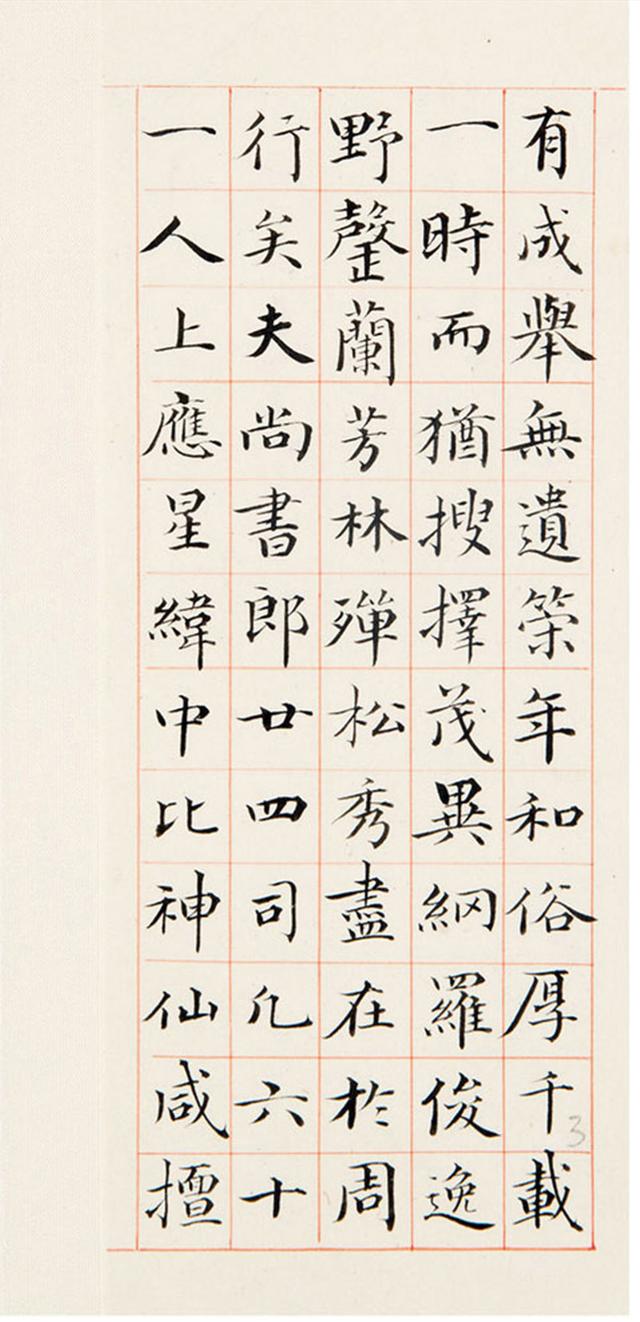 有成舉無遺筞年和俗厚千載
一時而猶搜擇茂異網羅俊逸
野罄蘭芳林殫松秀盡在於周
行矣夫尚書郎廿四司凢六十
一人上應星緯中比神仙咸擅
3